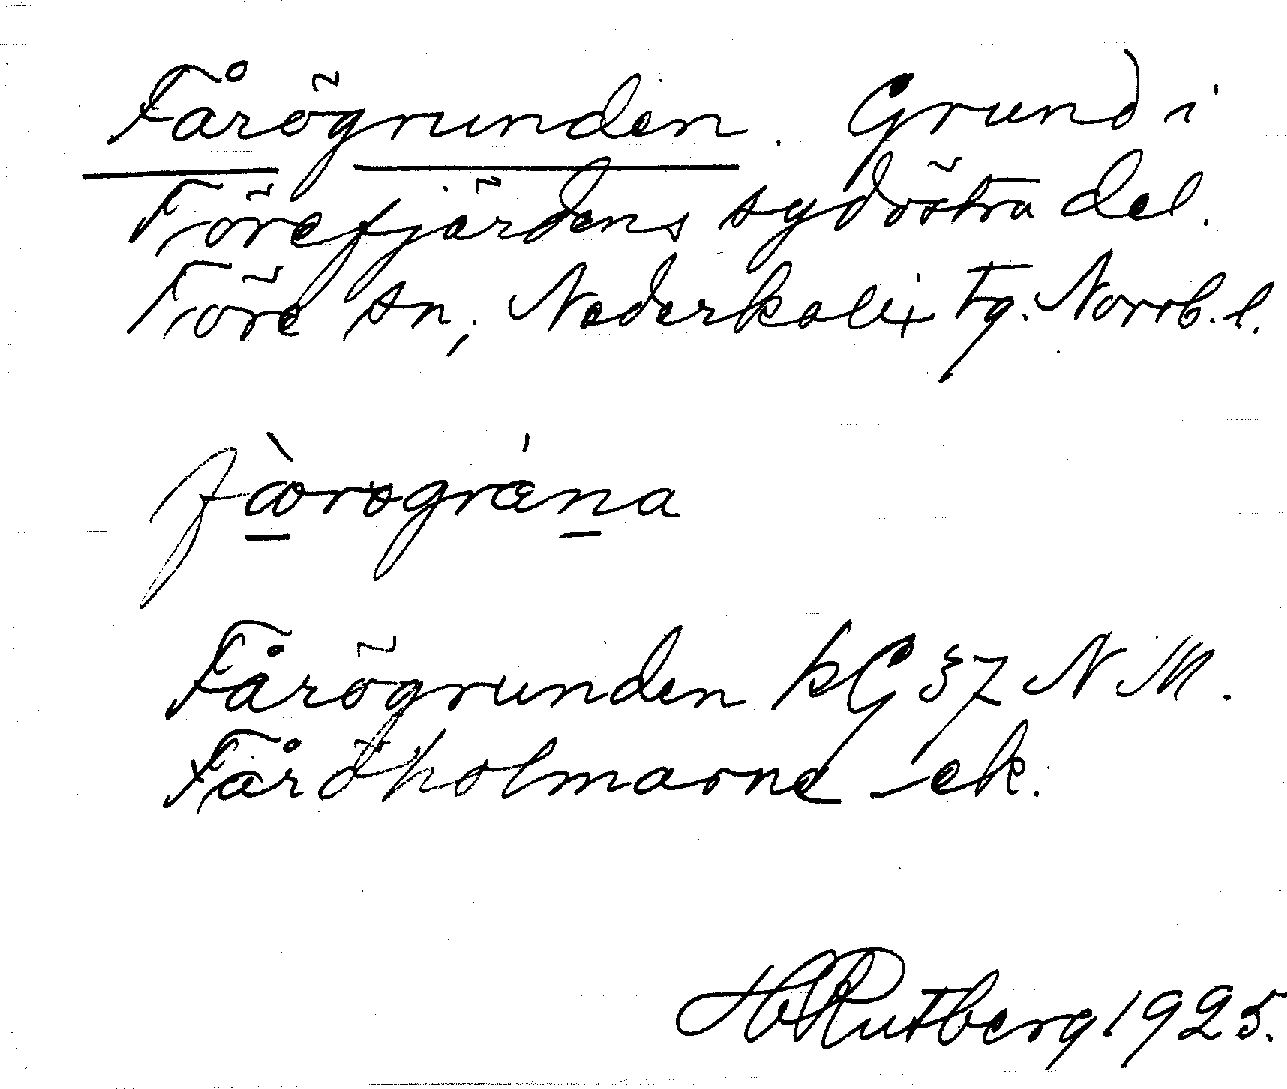 Fårögrunden. Grund i
Törefjärdens sydöstra del.
Töre sn, Nederkalix tg. Norrb. l.
Fårögrunden kG 37 N M.
Fåröholmarne ek.
H Rutberg 1925.